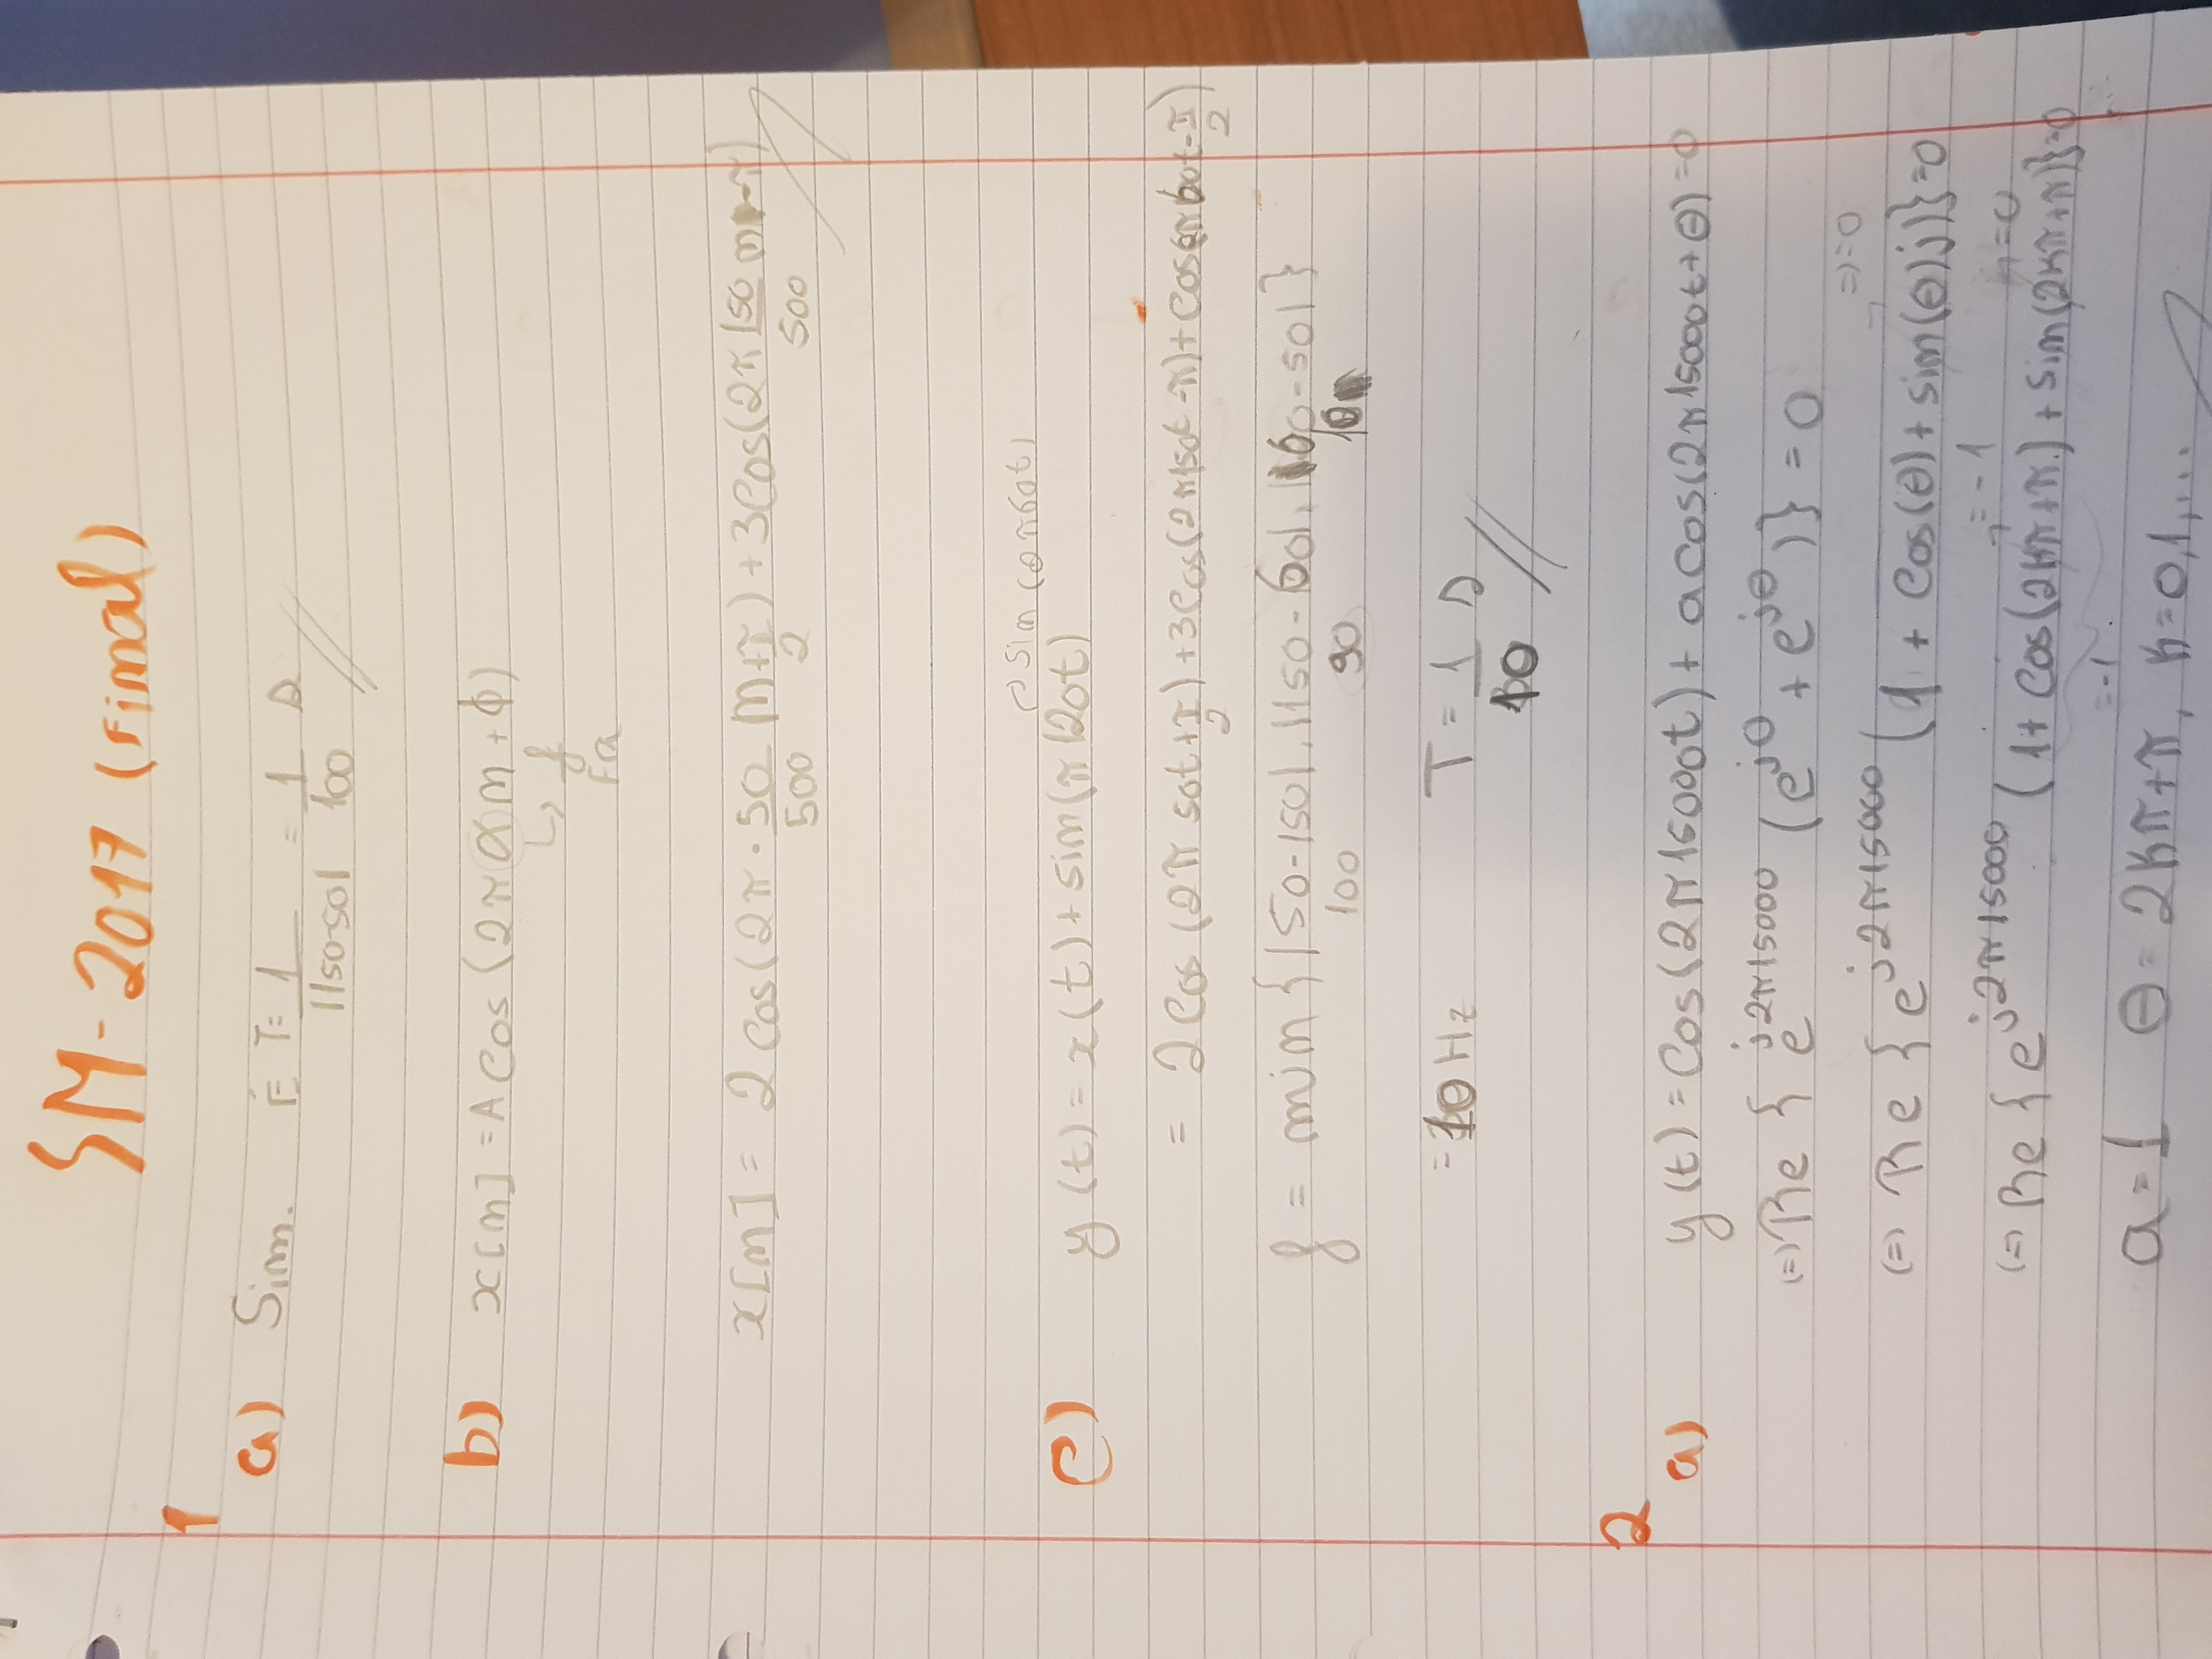 SM-2017 (Final)
1
a) Sim. É T= 1/|150-50| = 1/100 s
b) x[n] = A cos (2π α n + ϕ)
↳ f/Fa
x[n] = 2 cos(2π · 50/500 n + π/2) + 3 cos(2π 150/500 n - π)
→ sin(2π60t)
c) y(t) = x(t) + sin(π120t)
= 2 cos (2π 50t + π/2) + 3 cos(2π150t - π) + cos(2π60t - π/2)
f = min {|50-150|, |150-60|, |60-50|}
100 90 10
= 10 Hz T = 1/10 s
2
a) y(t) = cos(2π15000t) + a cos(2π15000t + θ) = 0
(=) Re { e^j2π15000 (e^j0 + e^jθ)} = 0
→ = 0
(=) Re { e^j2π15000 (1 + cos(θ) + sin(θ)j)} = 0
→ = -1 → = 0
(=) Re { e^j2π15000 (1 + cos(2kπ + π) + sin(2kπ + π)} = 0
= -1
a = 1 θ = 2kπ + π, k = 0,1,...